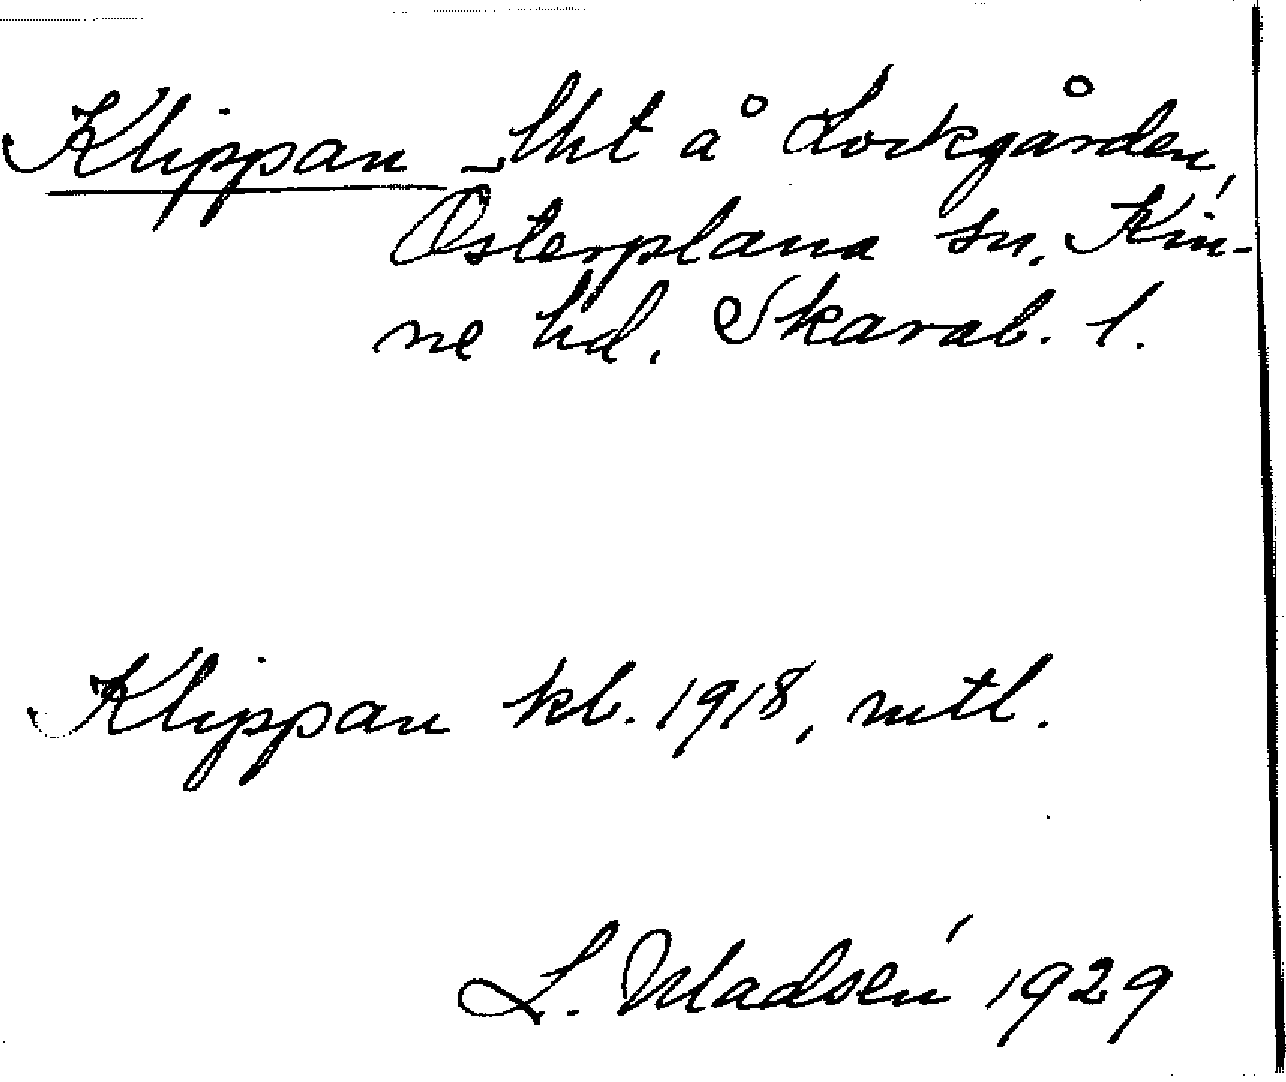 Klippan lht å Lockgården,
Österplana sn. Kin-
ne hd. Skarab. l.
Klippan kb. 1918, mtl.
L. Madsén 1929